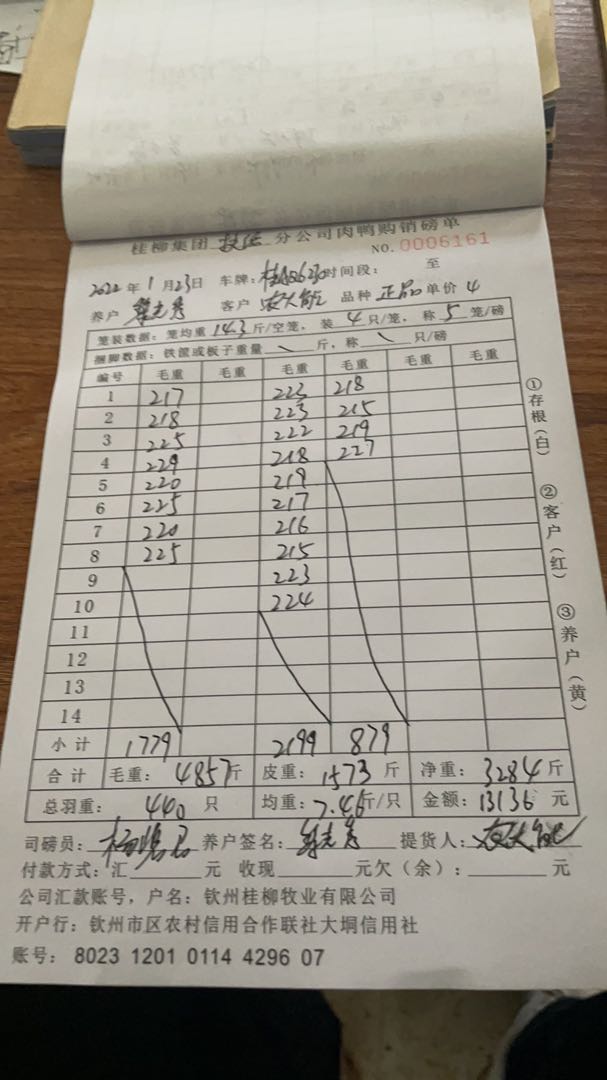 桂柳集团 分公司肉鸭购销磅单
NO. 0006161
2022 年 1 月 23 日 车牌: 时间段: 至
养户 客户 农大能 品种 正品 单价 4
笼装数据: 笼均重 14.3 斤/空笼, 装 4 只/笼, 称 5 笼/磅
捆脚数据: 铁筐或板子重量 \ 斤, 称 \ 只/磅
编号 毛重 毛重 毛重 毛重 毛重 毛重
1 217 223 218
2 218 223 215
3 225 222 219
4 229 218 227
5 220 219
6 225 217
7 220 216
8 225 215
9 223
10 224
11
12
13
14
小计 1779 2199 879
合计 毛重: 4857 斤 皮重: 1573 斤 净重: 3284 斤
总羽重: 440 只 均重: 7.46 斤/只 金额: 13136 元
司磅员: 养户签名: 提货人: 农大能
付款方式: 汇 元 收现 元欠(余): 元
公司汇款账号, 户名: 钦州桂柳牧业有限公司
开户行: 钦州市区农村信用合作联社大垌信用社
账号: 8023 1201 0114 4296 07
①存根(白)
②客户(红)
③养户(黄)